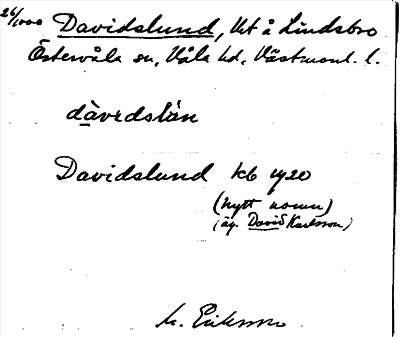 26/1000 Davidslund, lht å Lindsbro
Östervåla sn, Våla hd, Västmanl. l.
dàvedslùn
Davidslund kb 1920
(nytt namn)
(äg. David Karlsson)
M. Eriksson